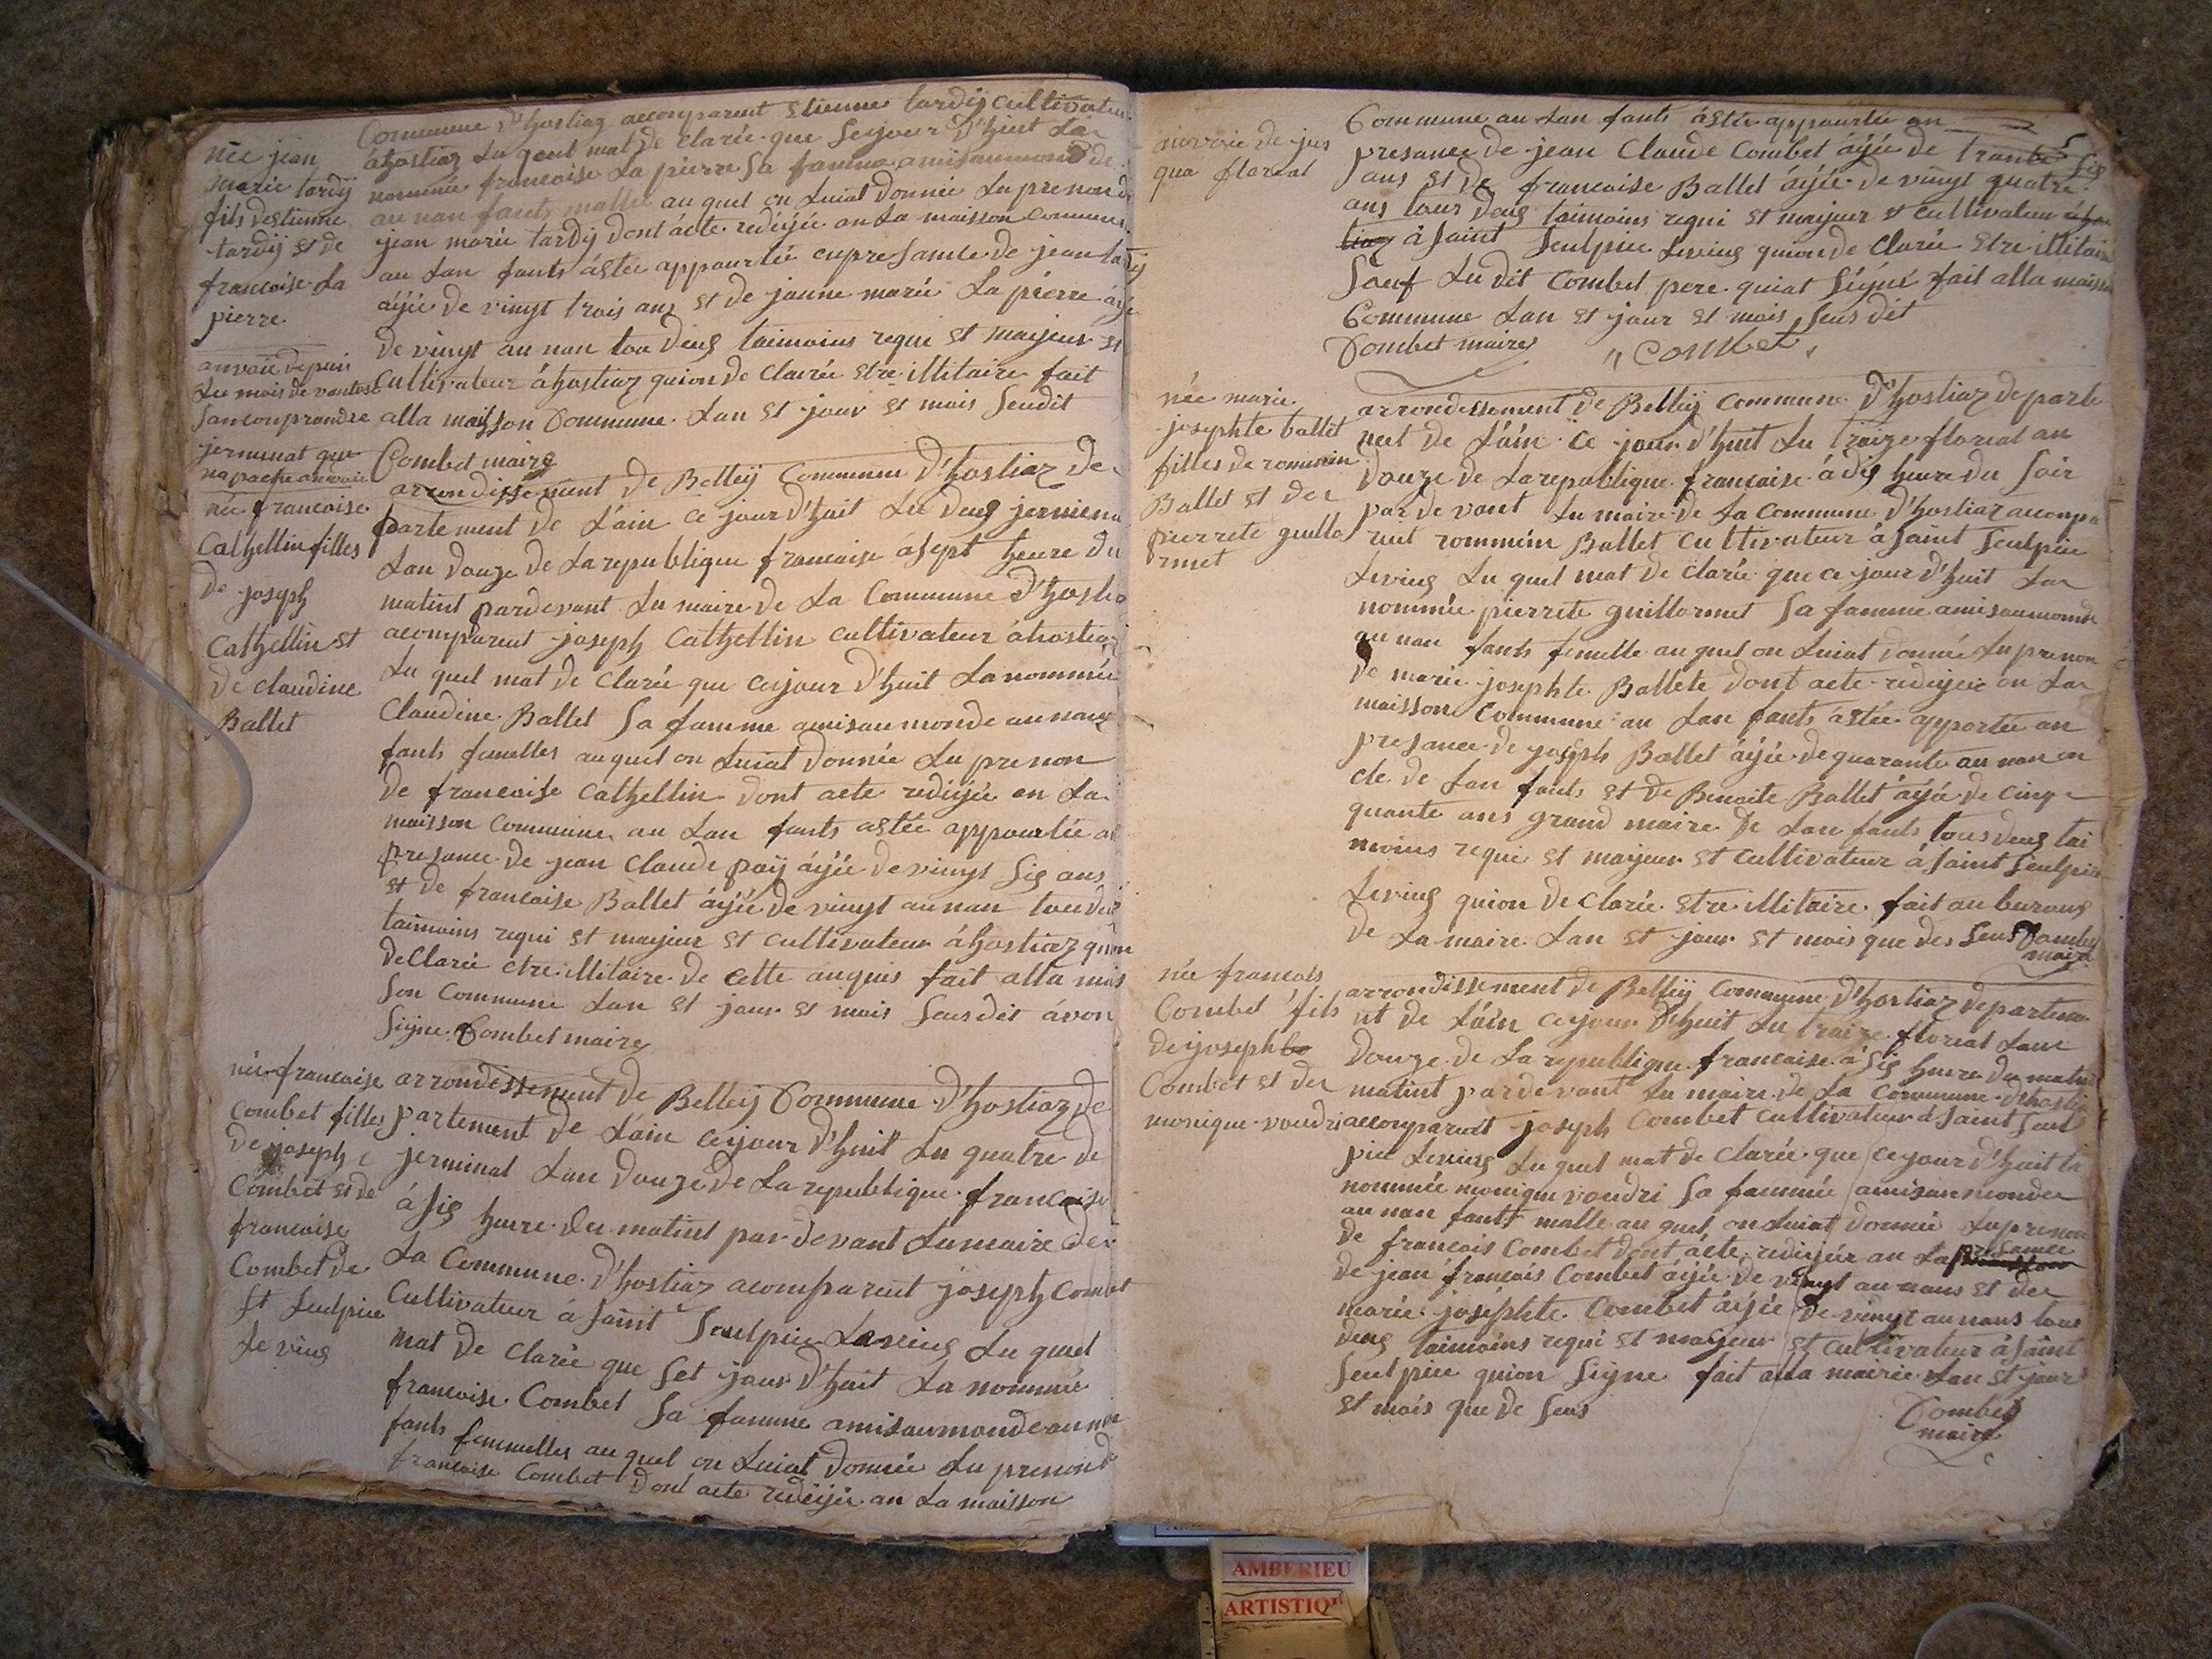 Commune d'hostiaz accomparent Etienne tardÿ cultivateur
née jean
marie tardÿ
fils destienne
tardÿ et de
francoise La
pierre
áhostiaz Lu quel mat de clarée que sejour d'huit La
nommée francoise La pierre sa famme amisaumonde
au nan fants malle au quel on Luiat donnée Lu prenon de
jean marie tardÿ dont ácte rediejée an La maisson commune
au Lan fants ástée appourtée enpresance de jean tardÿ
áÿée de vingt trois ans et de janne marie La pierre áÿée
de vingt au nan tou deus taimoins requi et majeur et
cultivateur áhostiaz quion de clairée etre illitaire fait
alla maisson Commune Lan et jour et mois seudit
Combet maire
anvoiè depuis
Lu mois de vantos
sanconprandre
jermenat que
na pas ete anvoiè
née francoise
Cathellin filles
De joseph
Cathellin et
De claudine
Ballet
arrondissement de Belleÿ Commune D'hostiaz De
partement de L'ain ce jour d'huit Lu deus jermena
Lan douze de La republique francaise ásept heure du
matint pardevant Lu maire de La Commune D'hostia
acomparent joseph Cathellin cultivateur áhostiaz
Lu quel mat de clarée que cejour d'huit La nommée
Claudine Ballet sa famme amisau monde au nan
fants femelles auquel on Luiat donnée Lu prenon
De francoise Cathellin dont acte rediejée an La
maisson commune au Lan fants astée appourtée an
presance de jean Claude paÿ áÿée de vingt sis ans
et de francoise Ballet áÿée de vingt au nan tou deus
taimoins requi et majeur et cultivateur áhostiaz quion
de Clarée etre illitaire de cette anquis fait alla mais
son commune Lan et jour et mois seusdit ávon
signe Combet maire
née francoise
combet filles
de joseph
Combet et de
francoise
Combet de
st seulpice
Le vius
arrondissement de Belleÿ Commune D'hostiaz De
partement de L'ain cejour d'huit Lu quatre de
jerminal Lan douze de La republique francaise
á sis heure du matint par devant Lumaire de
La Commune d'hostiaz acomparent joseph Combet
Cultivateur á saint seulpice Levius Lu quel
mat de clarée que set jour d'huit La nommée
francoise Combet sa famme amisaumonde au nan
fants femmelles au quel on Luiat donnée Lu prenon de
francoise Combet dont acte rediejée an La maisson
anvoiée de jus
qua floreal
Commune au Lan fants ástée appourtée an
presance de jean Claude Combet áÿée de trante sis
ans et de francoise Ballet áÿée de vingt quatre
ans tous deus taimoins requi et majeur et cultivateur áhos
tiaz á saint seulpice Levius quion de clarée etre illitaire
sauf Ludit Combet pere quiat signé fait alla maisson
Commune Lan et jour et mois seus dit
Combet maire combet
née marie
josephte ballet
filles de rommin
Ballet et de
pierrete guillo
rmet
arrondissement de Belleÿ Commune D'hostiaz departe
ment de L'ain Ce jour d'huit Lu traize florial an
Douze de La republique francaise á dis heure du soir
par de vant Lu maire de La Commune d'hostiaz accompa
rant rommin Ballet Cultivateur á saint seulpice
Levius Lu quel mat de clarée que ce jour d'huit La
nommée pierrete guillormet sa famme amisaumonde
au nan fants femelle au quel on Luiat donnée Lu prenon
de marie josephte Ballete dont acte rediejée an La
maisson Commune au Lan fants ástée apportée an
presance de joseph Ballet áÿée de quarante au nan on
cle de Lan fants et de Benoite Ballet áÿée de cinq
quante ans grand maire de Lan fants tous deus tai
moins requi et majeur et cultivateur á saint seulpice
Levius quion de clarée etre illitaire fait au buraus
de La maire Lan et jour et mois que des seus Combet
maire
née francois
Combet fils
de joseph
Combet et de
monique voudri
arrondissement de Belleÿ Commune D'hostiaz departeme
nt de L'ain cejour d'huit Lu traize florial Lanc
Douze de La republique francaise á sis heure du matint
matint pardevant Lu maire de La Commune d'hostia
accomparent joseph Combet cultivateur á saint seul
pice Levius Lu quel mat de clarée que ce jour d'huit La
nommée monique voudri sa fammée amisaumonde
au nan fants malle au quel on Luiat donnée Lu prenon
de francois Combet dont ácte rediejée an La presance
de jean francois Combet áÿée de vingt au nans et de
marie josephte Combet áÿée de vingt au nans tous
deus taimoins requi et majeur et cultivateur á saint
seulpice quion signe fait alla mairie Lan et jour
et mois que de seus
Combet
maire
AMBERIEU
ARTISTIQ